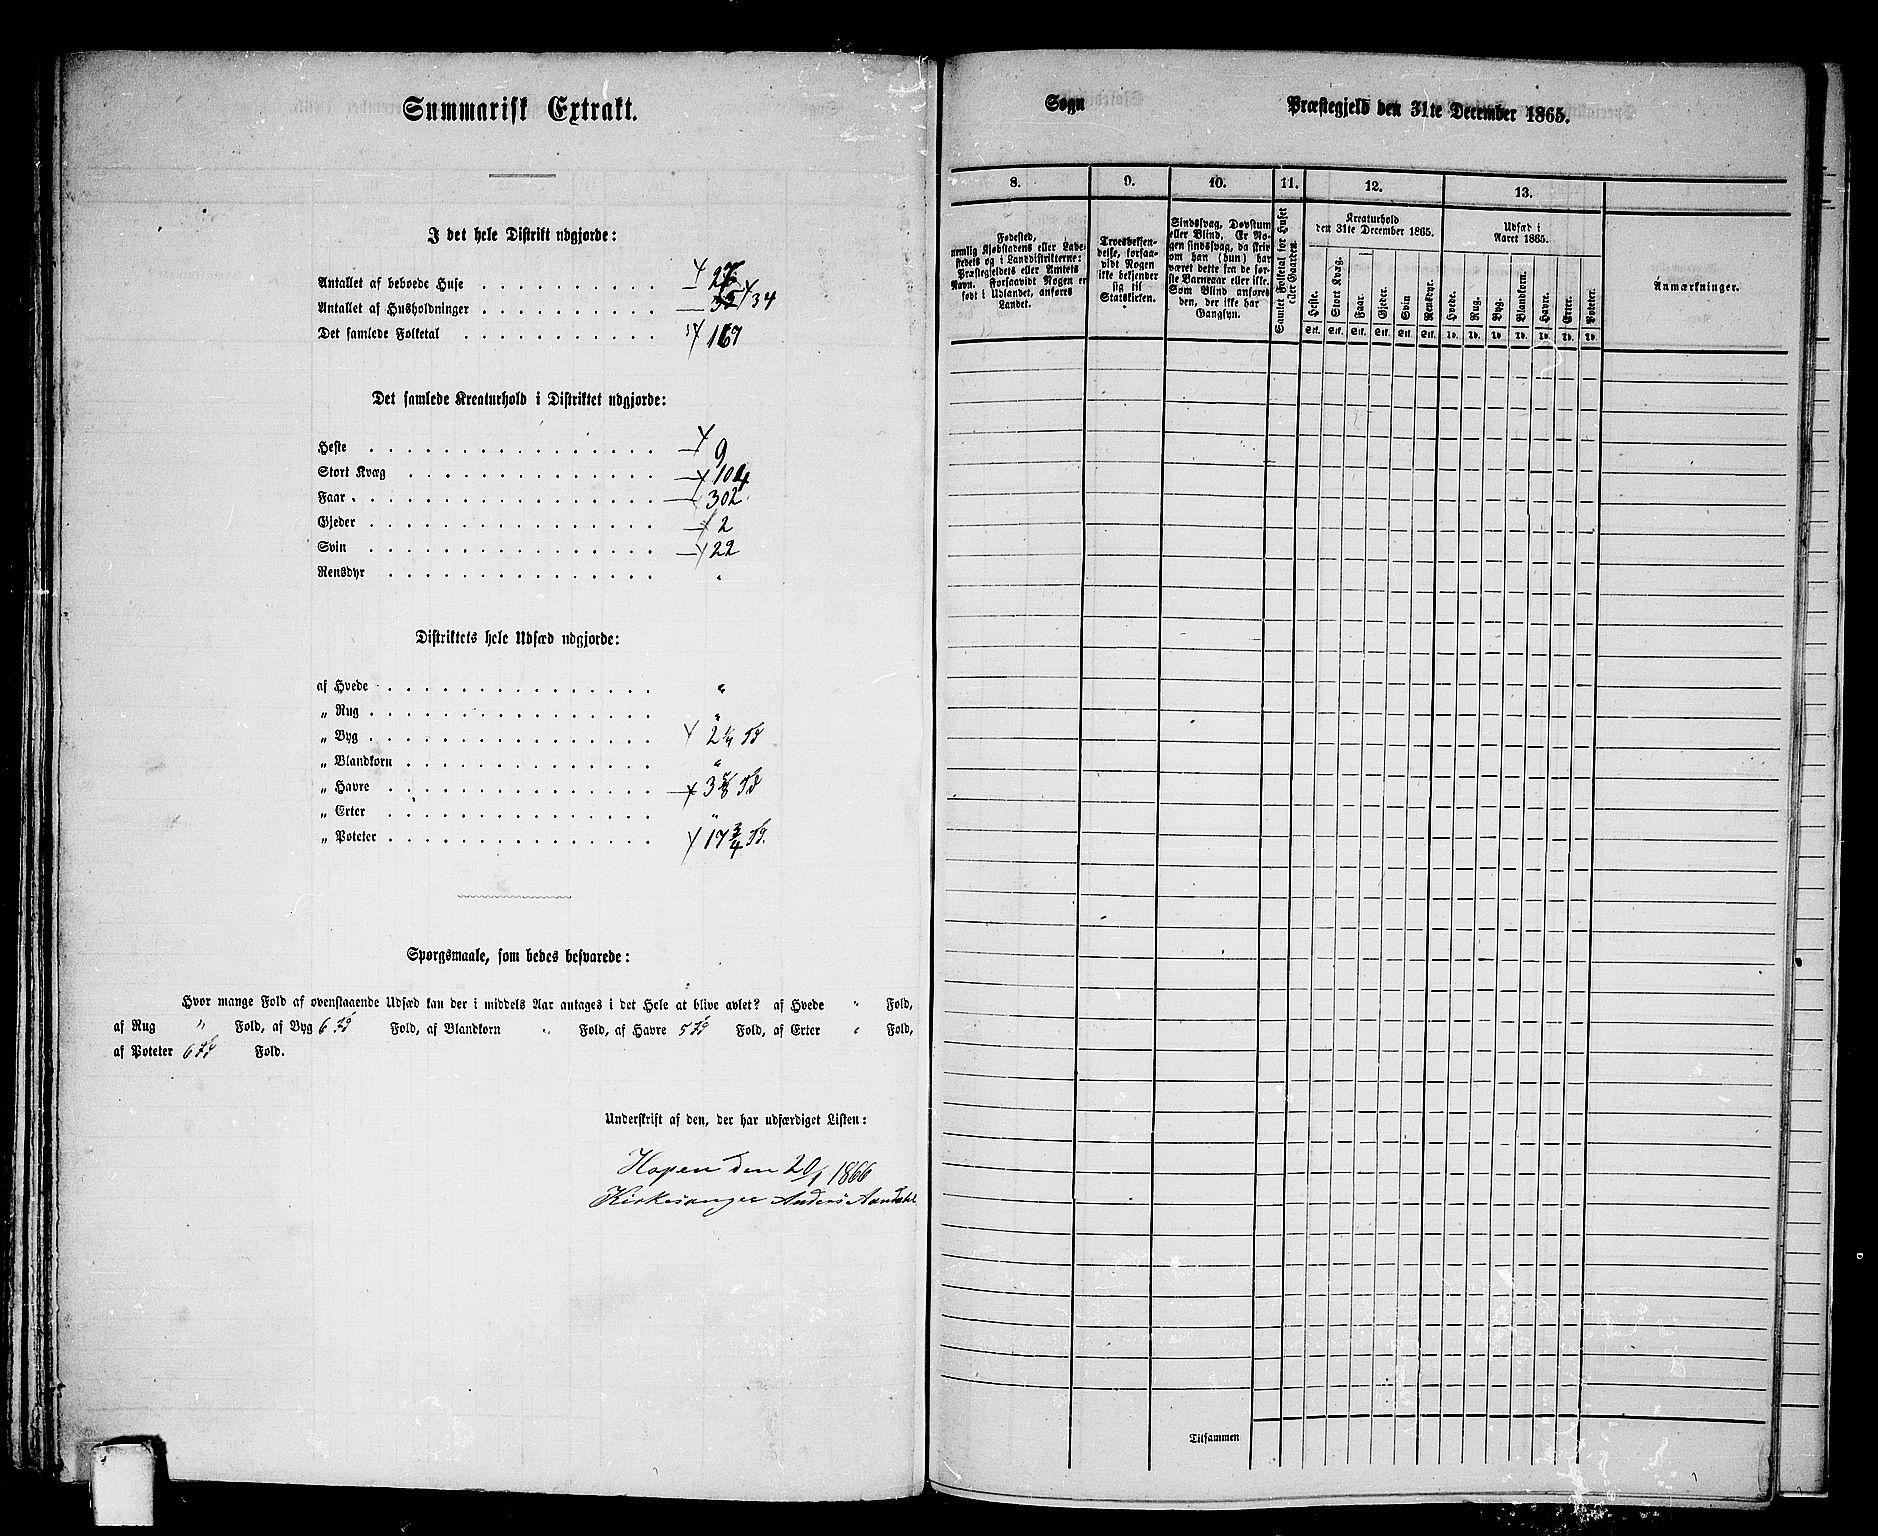 Summarisk Extrakt.
I det hele Distrikt udgjorde:
Antallet af beboede Huse 27
Antallet af Husholdninger 34
Det samlede Folketal 169
Det samlede Kreaturhold i Distriktet udgjorde:
Heste 9
Stort Kvæg 104
Faar 302
Gjeder 2
Svin 22
Rensdyr "
Distriktets hele Udsæd udgjorde:
af Hvede "
„ Rug "
„ Byg 2 1/4 Td
„ Blandkorn "
„ Havre Td
„ Erter "
„ Poteter 17 3/4 Td.
Spørgsmaale, som bedes besvarede:
Hvor mange Fold af ovenstaaende Udsæd kan der i middels Aar antages i det Hele at blive avlet? af Hvede " Fold,
af Rug " Fold, af Byg 6 Td Fold, af Blandkorn " Fold, af Havre 5 Td Fold, af Erter " Fold,
af Poteter 6 Td Fold.
Underskrift af den, der har udfærdiget Listen:
Hopen den 20/1 1866
Kirkesanger Anders Aandahl
Sogn Præstegjeld den 31te December 1865.
8. 9. 10. 11. 12. 13.
Fødested,
nemlig Kjøbstadens eller Lade-
stedets og i Landdistrikterne:
Præstegjeldets eller Amtets
Navn. Forsaavidt Nogen er
født i Udlandet, anføres
Landet.
Troesbekjen-
delse, forsaa-
vidt Nogen
ikke bekjender
sig til
Statskirken.
Sindssvag, Døvstum
eller Blind. Er No-
gen sindssvag, da skriv
om han (hun) har
været dette fra de før-
ste Barneaar eller ikke.
Som Blind anføres
den, der ikke har
Gangsyn.
Samlet Folketal for Huset
eller Gaarden.
Kreaturhold
den 31te December 1865.
Heste. Stort Kvæg. Faar. Gjeder. Svin Rensdyr.
Stk. Stk. Stk. Stk. Stk. Stk.
Udsæd i
Aaret 1865.
Hvede. Rug. Byg. Blandkorn. Havre. Erter. Poteter.
Td. Td. Td. Td. Td. Td. Td.
Anmærkninger.
Tilsammen